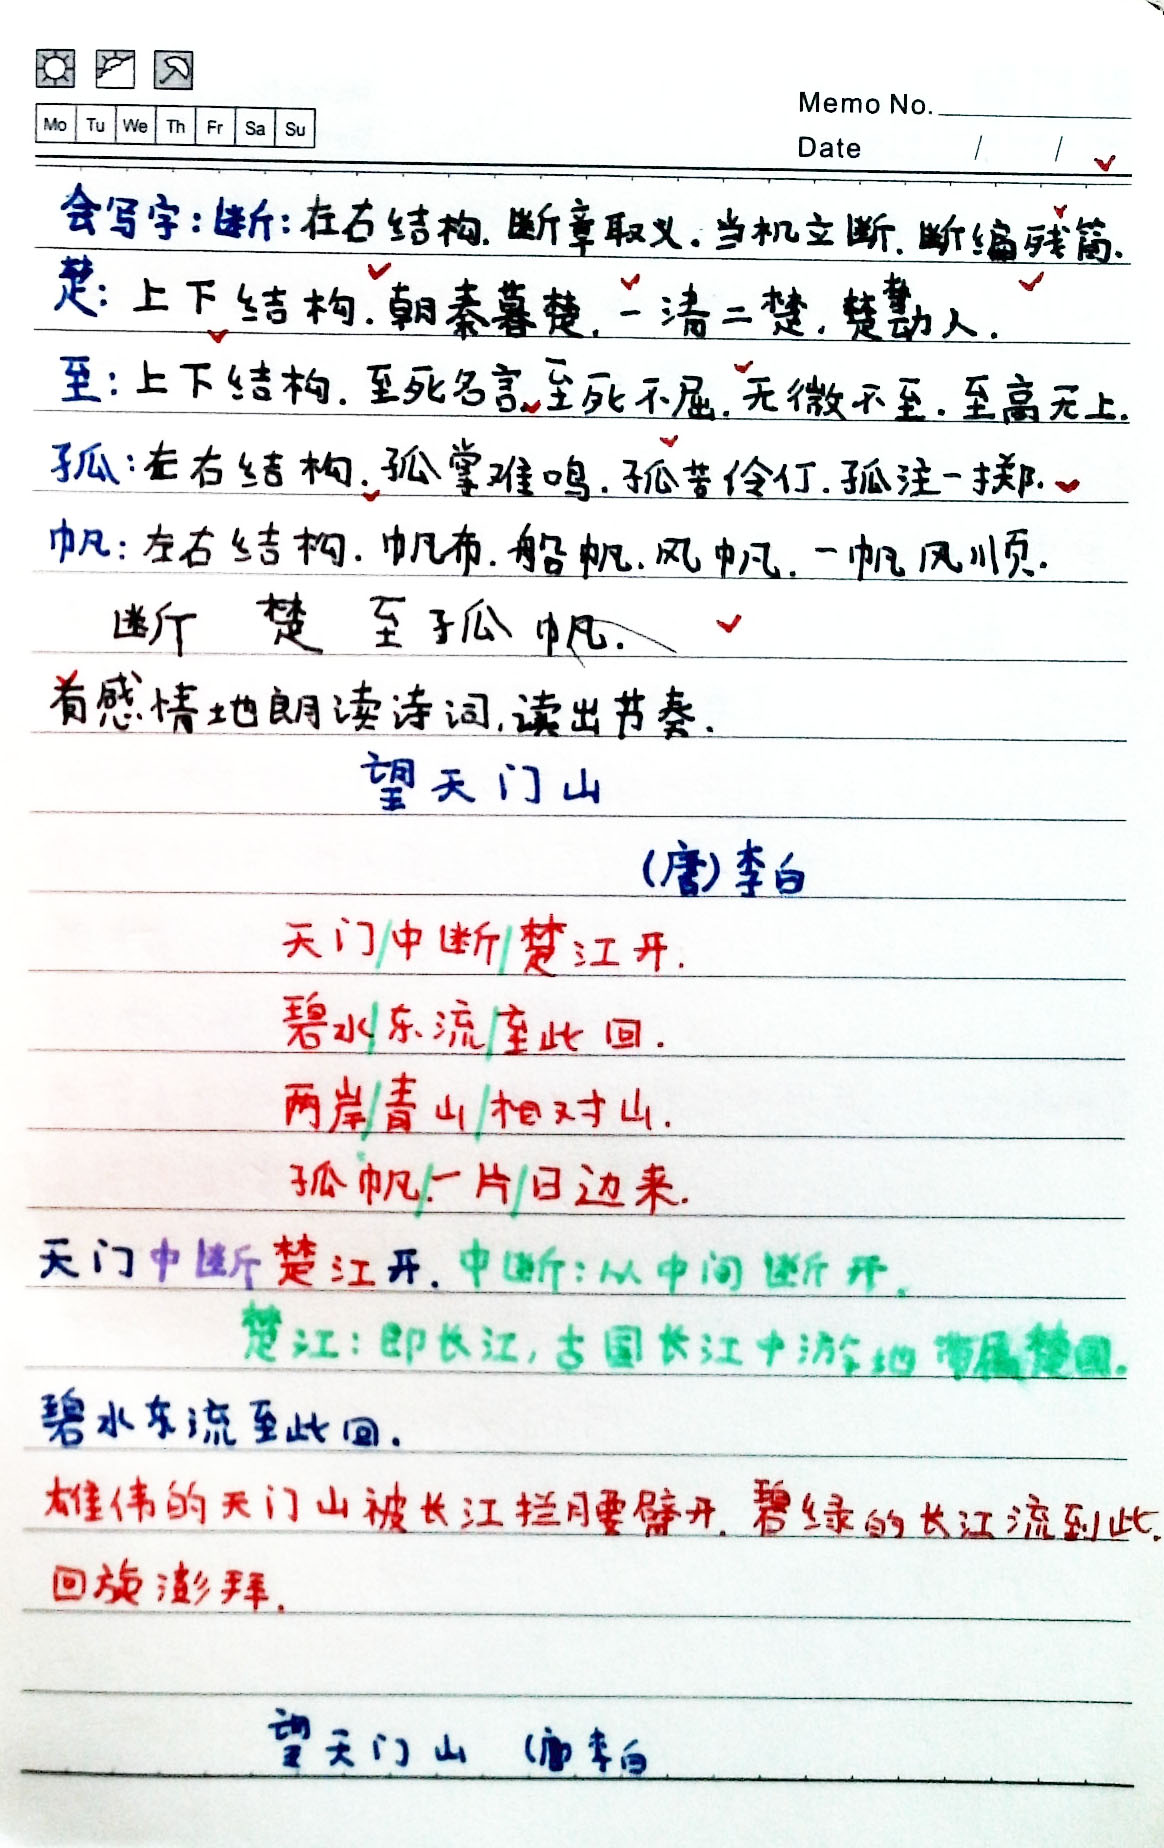 Memo No.
Mo Tu We Th Fr Sa Su
Date / /
会写字:断:左右结构.断章取义.当机立断.断编残简.
楚:上下结构.朝秦暮楚.一清二楚.楚楚动人.
至:上下结构.至死名言.至死不屈.无微不至.至高无上.
孤:左右结构.孤掌难鸣.孤苦伶仃.孤注一掷.
帆:左右结构.帆布.船帆.风帆.一帆风顺.
断 楚 至 孤 帆.
有感情地朗读诗词,读出节奏.
望天门山
(唐)李白
天门/中断/楚江开.
碧水/东流/至此回.
两岸/青山/相对山.
孤帆/一片/日边来.
天门中断楚江开.中断:从中间断开.
楚江:即长江,古国长江中游地带属楚国.
碧水东流至此回.
雄伟的天门山被长江拦腰劈开.碧绿的长江流到此.
回旋澎拜.
望天门山 (唐李白